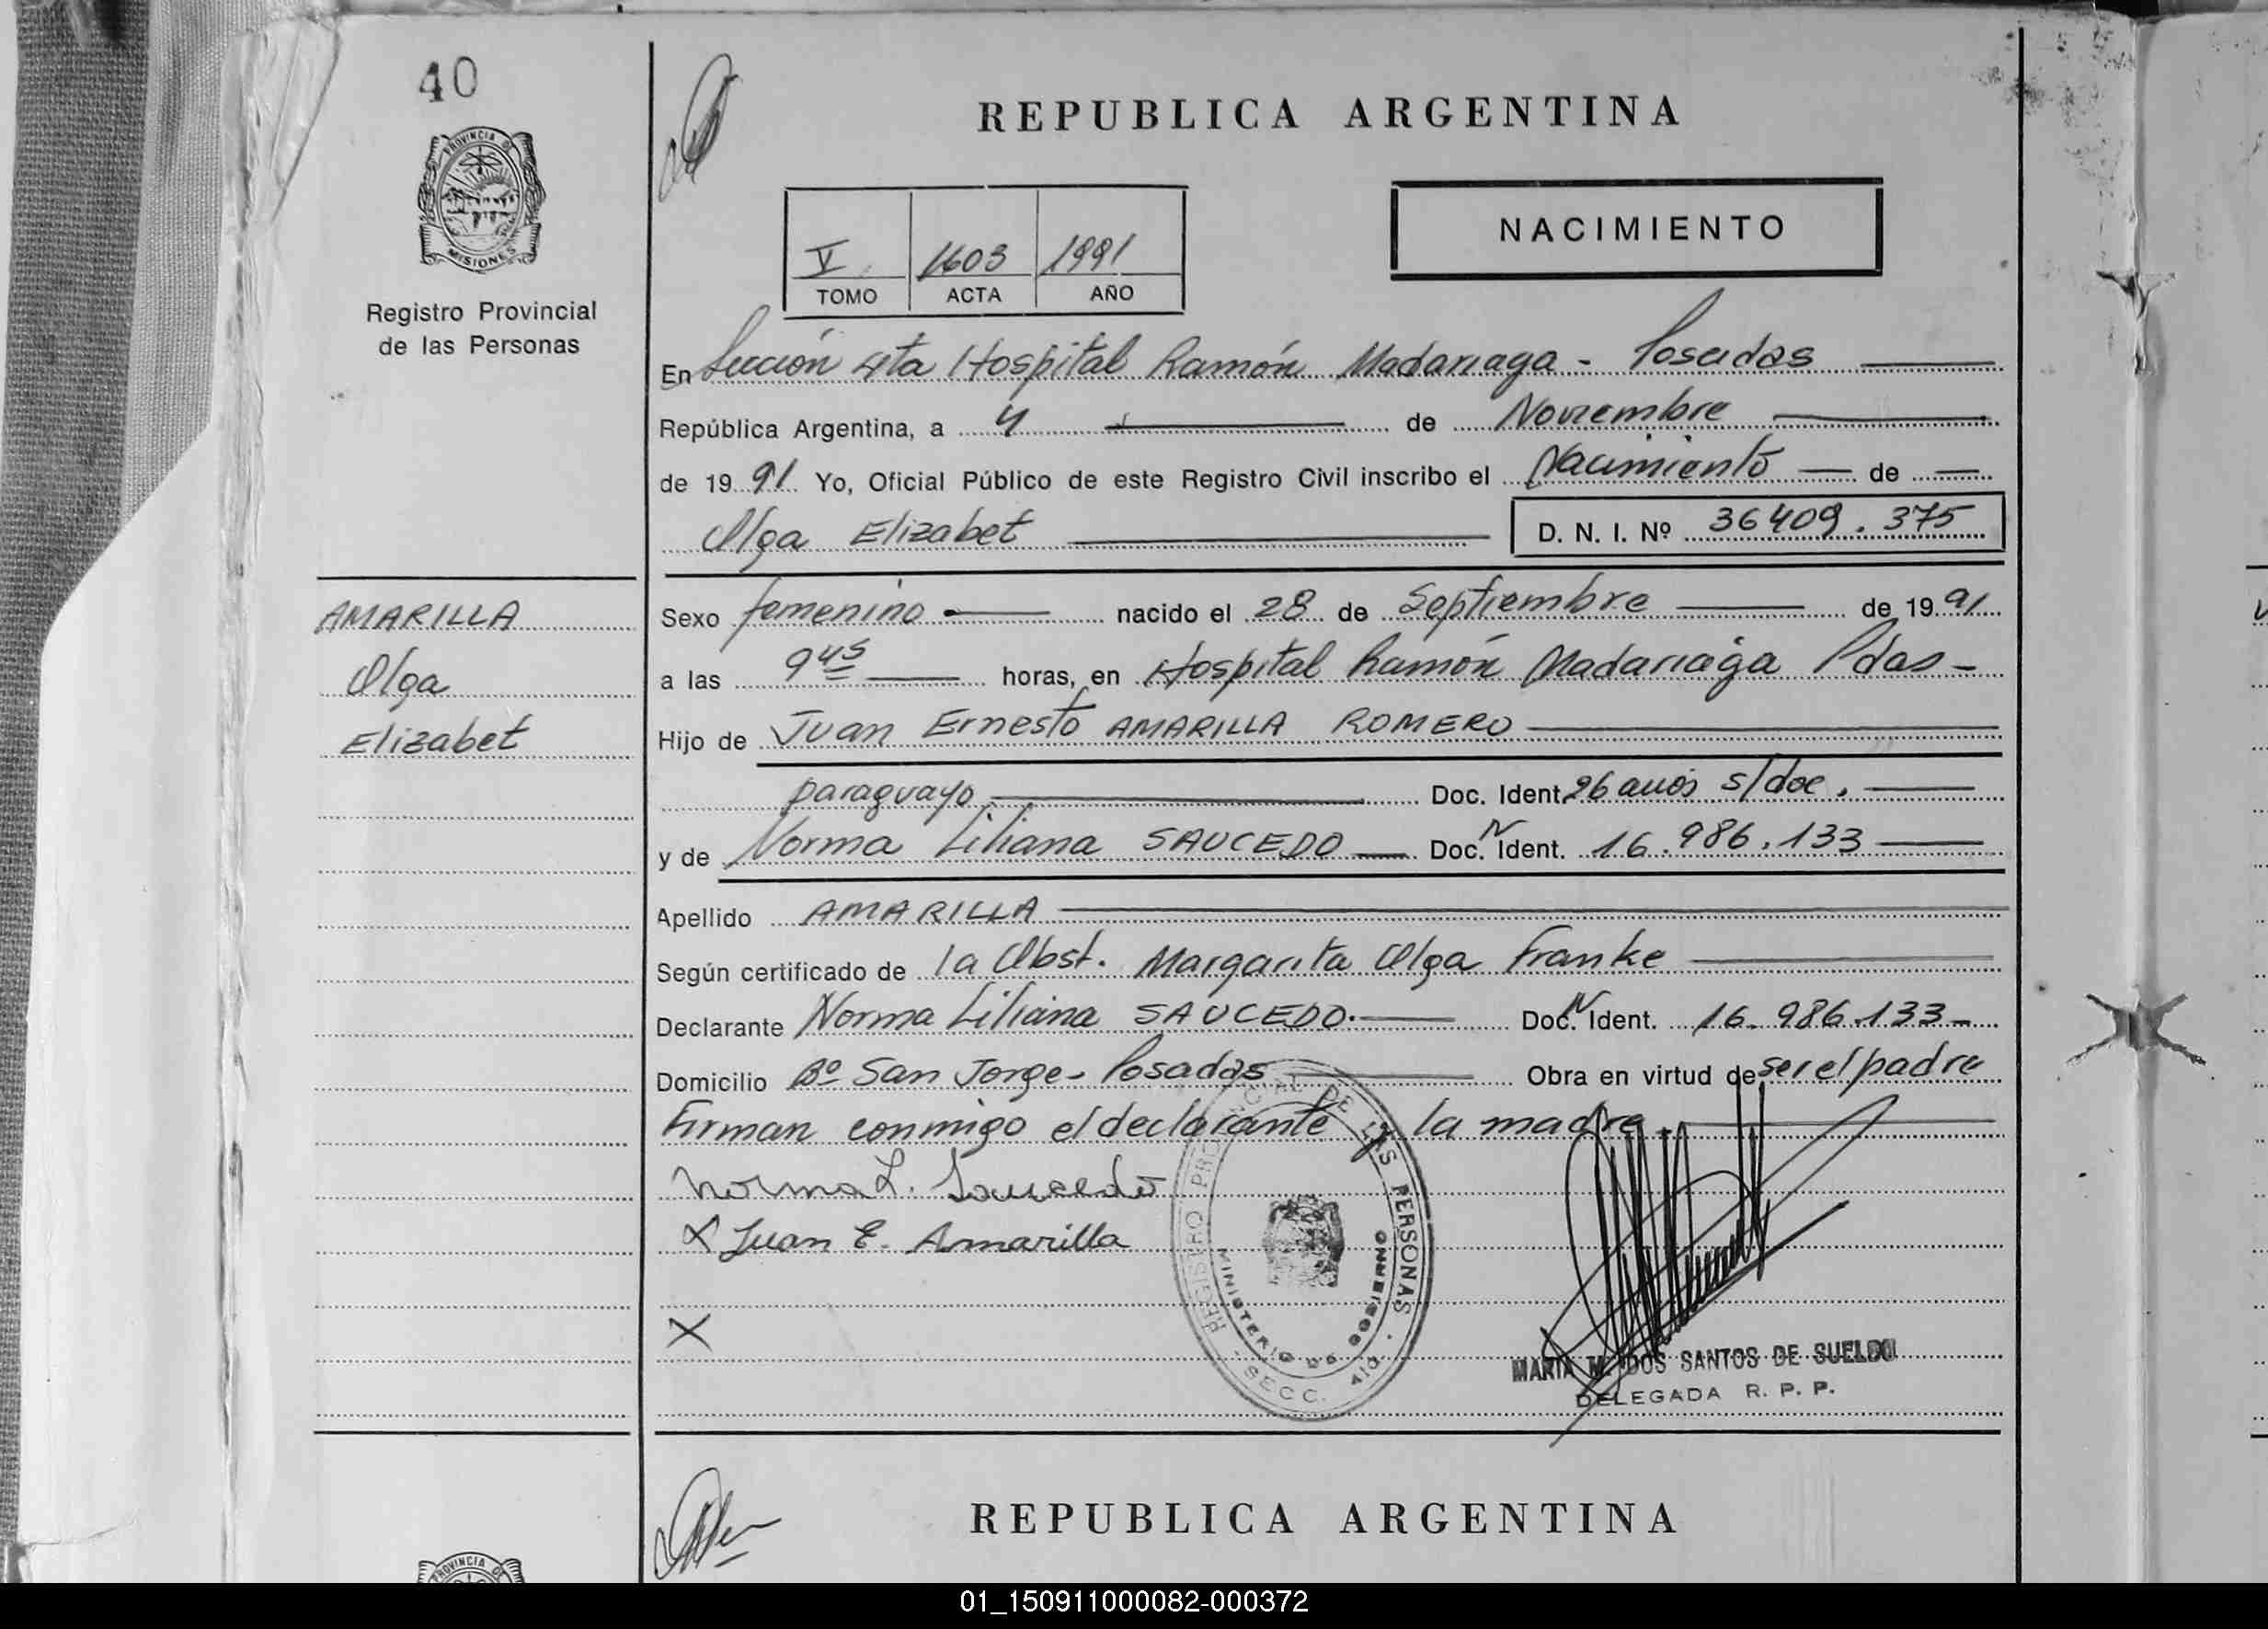 40
PROVINCIA DE
MISIONES
Registro Provincial
de las Personas
AMARILLA
Olga
Elizabet
REPUBLICA ARGENTINA
NACIMIENTO
V 1603 1991
TOMO ACTA AÑO
En Sección 4ta Hospital Ramón Madariaga - Posadas
República Argentina, a 4 de Noviembre
de 1991 Yo, Oficial Público de este Registro Civil inscribo el Nacimiento de
Olga Elizabet D. N. I. Nº 36409.375
Sexo femenino nacido el 28 de Septiembre de 1991
a las 9 45 horas, en Hospital Ramón Madariaga Pdas -
Hijo de Juan Ernesto AMARILLA ROMERO
paraguayo Doc. Ident. 26 años s/doc.
y de Norma Liliana SAUCEDO Doc. N Ident. 16.986.133
Apellido AMARILLA
Según certificado de la Obst. Margarita Olga Franke
Declarante Norma Liliana SAUCEDO. Doc. N Ident. 16.986.133-
Domicilio Bº San Jorge - Posadas Obra en virtud de ser el padre
Firman conmigo el declarante y la madre.
Norma L. Saucedo
X Juan E. Amarilla
X
REGISTRO PROVINCIAL DE LAS PERSONAS
MINISTERIO DE GOBIERNO
SECC. 4ta
MARIA M. DOS SANTOS DE SUELDO
DELEGADA R. P. P.
REPUBLICA ARGENTINA
PROVINCIA DE
01_150911000082-000372